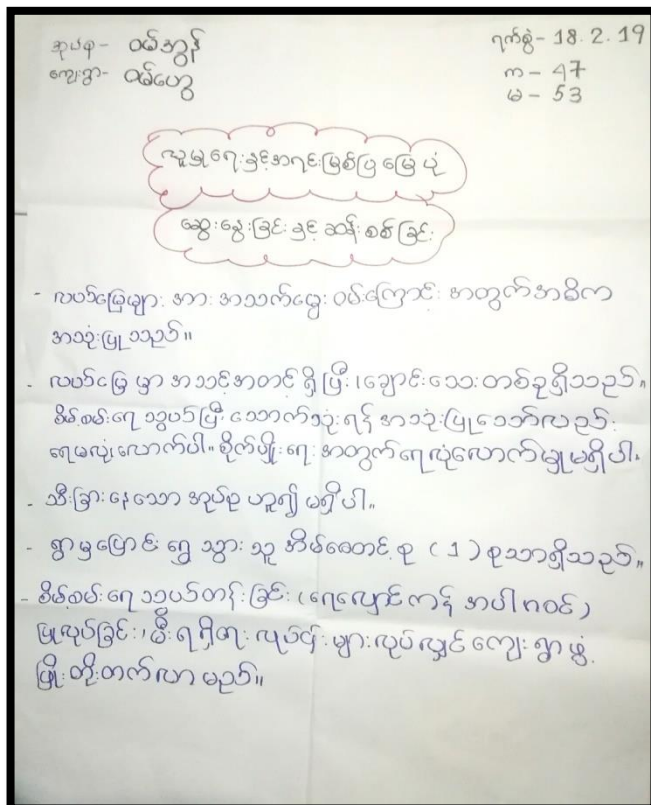 အုပ်စု - ဝမ်ဘွန်
ကျေးရွာ - ဝမ်ဟွေ
ရက်စွဲ - 18.2.19
က - 47
မ - 53
လူမှုရေးနှင့်အရင်းမြစ်ပြမြေပုံ
ဆွေးနွေးခြင်းနှင့် ဆန်းစစ်ခြင်း
- လယ်မြေများအား အသက်မွေးဝမ်းကြောင်း အတွက်အဓိက
အသုံးပြုသည်။
- လယ်မြေမှာ အသင့်အတင့်ရှိပြီး၊ ချောင်းသေးတစ်ခုရှိသည်။
စိမ့်စမ်းရေသွယ်ပြီး သောက်သုံးရန် အသုံးပြုသော်လည်း
ရေမလုံလောက်ပါ။ စိုက်ပျိုးရေးအတွက်ရေလုံလောက်မှုမရှိပါ။
- သီးခြားနေသော အုပ်စု ဟူ၍ မရှိပါ။
- ရွာမှပြောင်းရွှေ့သွားသူ အိမ်ထောင်စု (1) စုသာရှိသည်။
- စိမ့်စမ်းရေသွယ်တန်းခြင်း (ရေလှောင်ကန် အပါဝင်)
ပြုလုပ်ခြင်း၊ မီးရရှိရေး လုပ်ငန်းများလုပ်လျှင် ကျေးရွာဖွံ့
ဖြိုးတိုးတက်လာမည်။